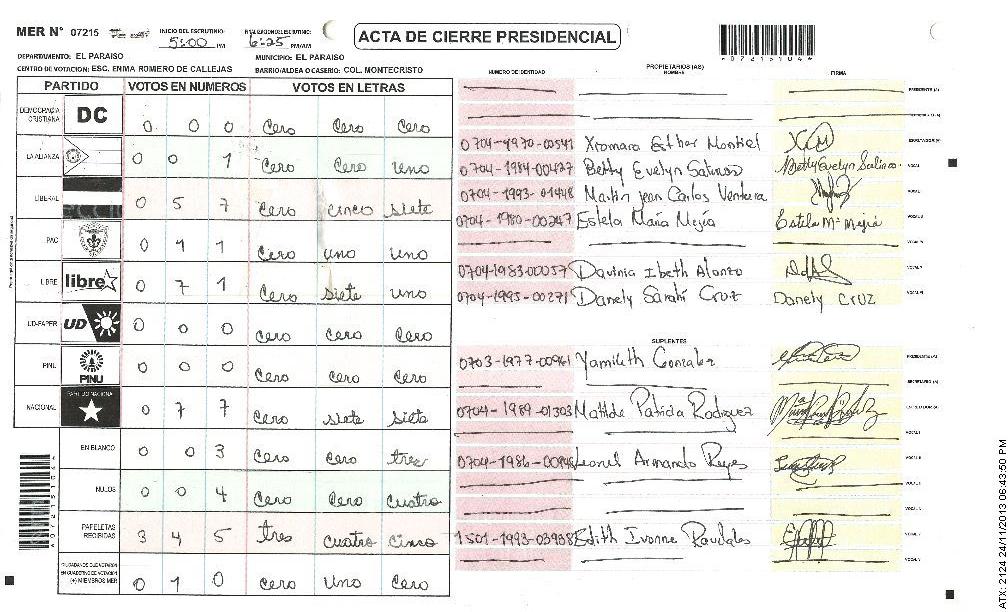 MER N° 07215 INICIO DEL ESCRUTINIO: 5:00 PM 6:25 PM/AM
ACTA DE CIERRE PRESIDENCIAL
07215104
DEPARTAMENTO: EL PARAISO MUNICIPIO: EL PARAISO
CENTRO DE VOTACION: ESC. ENMA ROMERO DE CALLEJAS BARRIO/ALDEA O CASERIO: COL. MONTECRISTO
PARTIDO VOTOS EN NUMEROS VOTOS EN LETRAS
DEMOCRACIA CRISTIANA DC 0 0 0 Cero Cero Cero
LA ALIANZA 0 0 1 Cero Cero uno
LIBERAL 0 5 7 Cero cinco siete
PAC 0 1 1 Cero uno uno
LIBRE libre 0 7 1 Cero siete uno
UD-FAPER UD 0 0 0 Cero Cero Cero
PINU PINU 0 0 0 Cero Cero Cero
NACIONAL PARTIDO NACIONAL 0 7 7 Cero siete siete
EN BLANCO 0 0 3 Cero Cero tres
NULOS 0 0 4 Cero Cero Cuatro
PAPELETAS RECIBIDAS 3 4 5 tres cuatro cinco
(+) MIEMBROS MER 0 1 0 Cero uno Cero
NUMERO DE IDENTIDAD PROPIETARIOS (AS) NOMBRE FIRMA
PRESIDENTE (A)
0704-1970-00541 Xiomara Esther Montiel
0704-1984-00427 Betty Evelyn Salinas Betty Evelyn Salinas
0704-1993-01448 Martin jean Carlos Ventura
0704-1980-00247 Estela María Mejía Estela Mª Mejia
0704-1983-00057 Davinia Ibeth Alonzo
0704-1995-00271 Danely Sarahí Cruz Danely Cruz
SUPLENTES
0703-1977-00961 Yamileth Gonzalez
0704-1989-01303 Matilde Patricia Rodriguez
Leonel Armando Reyes
1501-1993-03938 Edith Ivonne Raudales
ATX: 2124 24/11/2013 06:43:50 PM